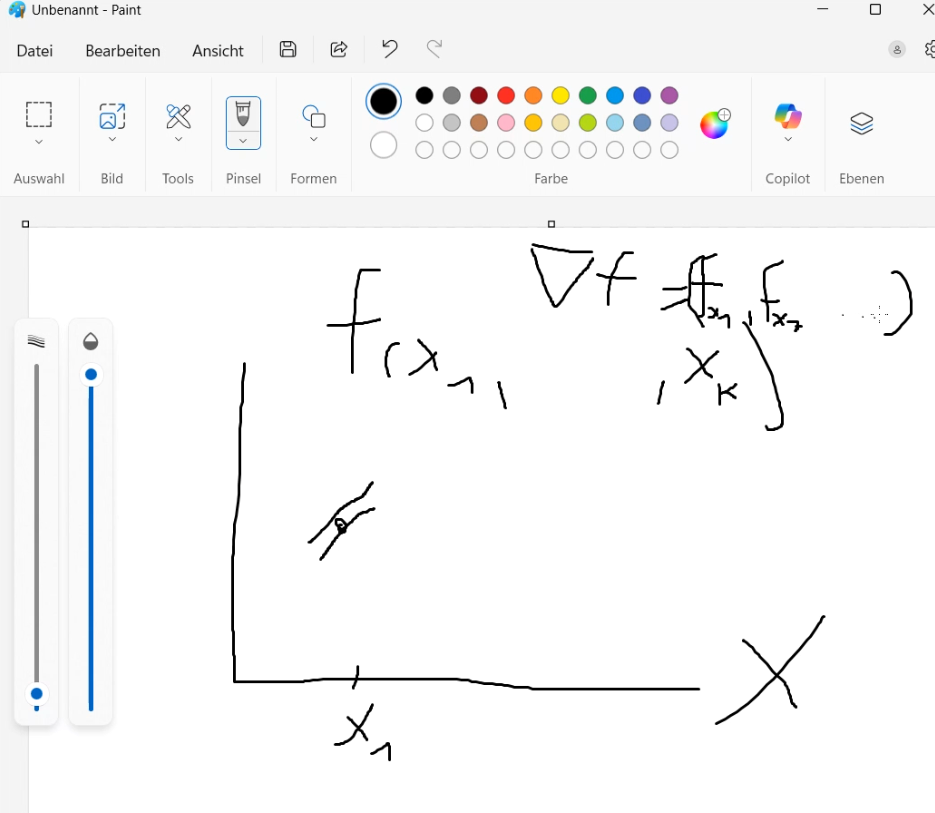 Unbenannt - Paint
Datei Bearbeiten Ansicht
Auswahl Bild Tools Pinsel Formen Farbe Copilot Ebenen
∇f = (f_x1, f_x2 ....)
f(x_1, , x_k)
x_1
X